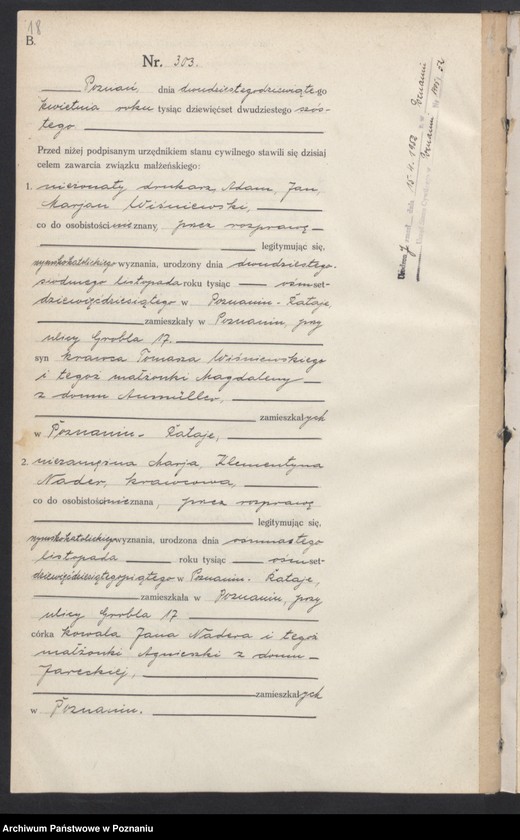 18
B.
Nr. 303.
Poznań, dnia dwudziestegodziewiątego
kwietnia roku tysiąc dziewięćset dwudziestego szós-
tego.
Przed niżej podpisanym urzędnikiem stanu cywilnego stawili się dzisiaj
celem zawarcia związku małżeńskiego:
1. nieżonaty drukarz Adam, Jan,
Marjan Wiśniewski,
co do osobistości nieznany, przez rozprawę
legitymując się,
rzymskokatolickiego wyznania, urodzony dnia dwudziestego-
siódmego listopada roku tysiąc ośmset-
dziewięćdziesiątego w Poznaniu-Rataje,
zamieszkały w Poznaniu, przy
ulicy Grobla 17.
syn krawca Tomasza Wiśniewskiego
i tegoż małżonki Magdaleny
z domu
zamieszkałych
w Poznaniu-Rataje,
2. niezamężna Marja, Klementyna
Nader, krawcowa,
co do osobistości nieznana, przez rozprawę
legitymując się,
rzymskokatolickiego wyznania, urodzona dnia ośmnastego
listopada roku tysiąc ośmset-
dziewięćdziesiątegopiątego w Poznaniu-Rataje,
zamieszkała w Poznaniu, przy
ulicy Grobla 17
córka kowala Jana Nadera i tegoż
małżonki Agnieszki z domu
Jareckiej,
zamieszkałych
w Poznaniu.
dnia 15.4.1952 w Poznaniu
Archiwum Państwowe w Poznaniu